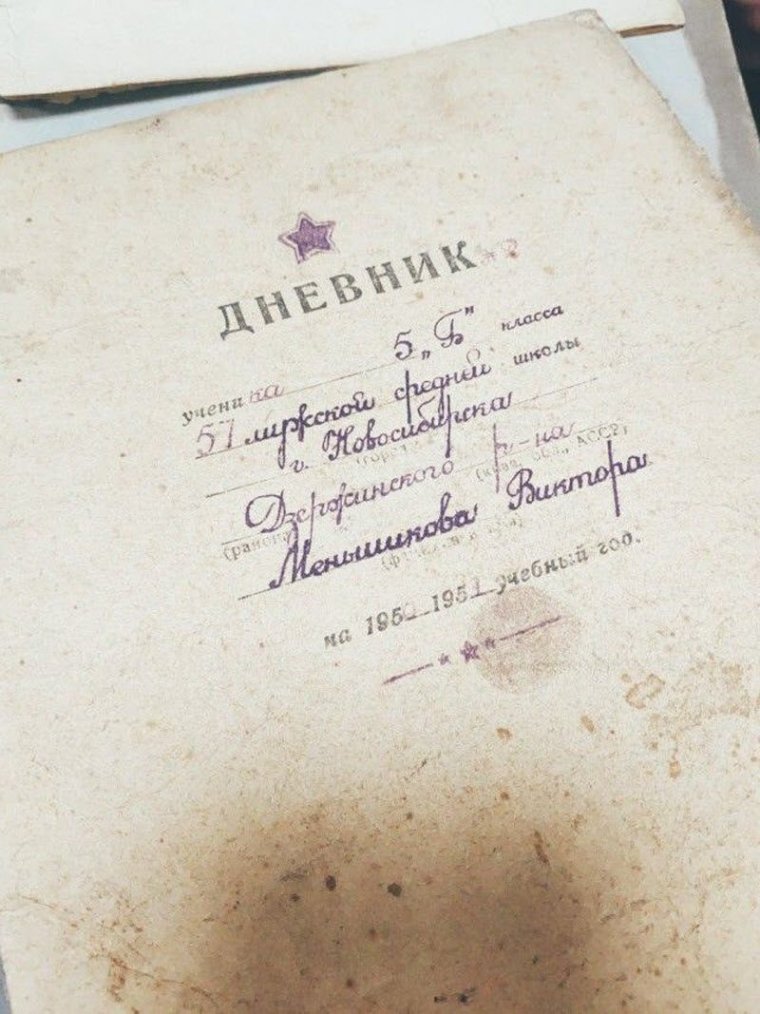 ДНЕВНИК
ученика 5 „Б" класса
57 мужской средней школы
г. Новосибирска
Дзержинского р-на
(района) АССР)
Меньшикова Виктора
на 1950 1951 учебный год.